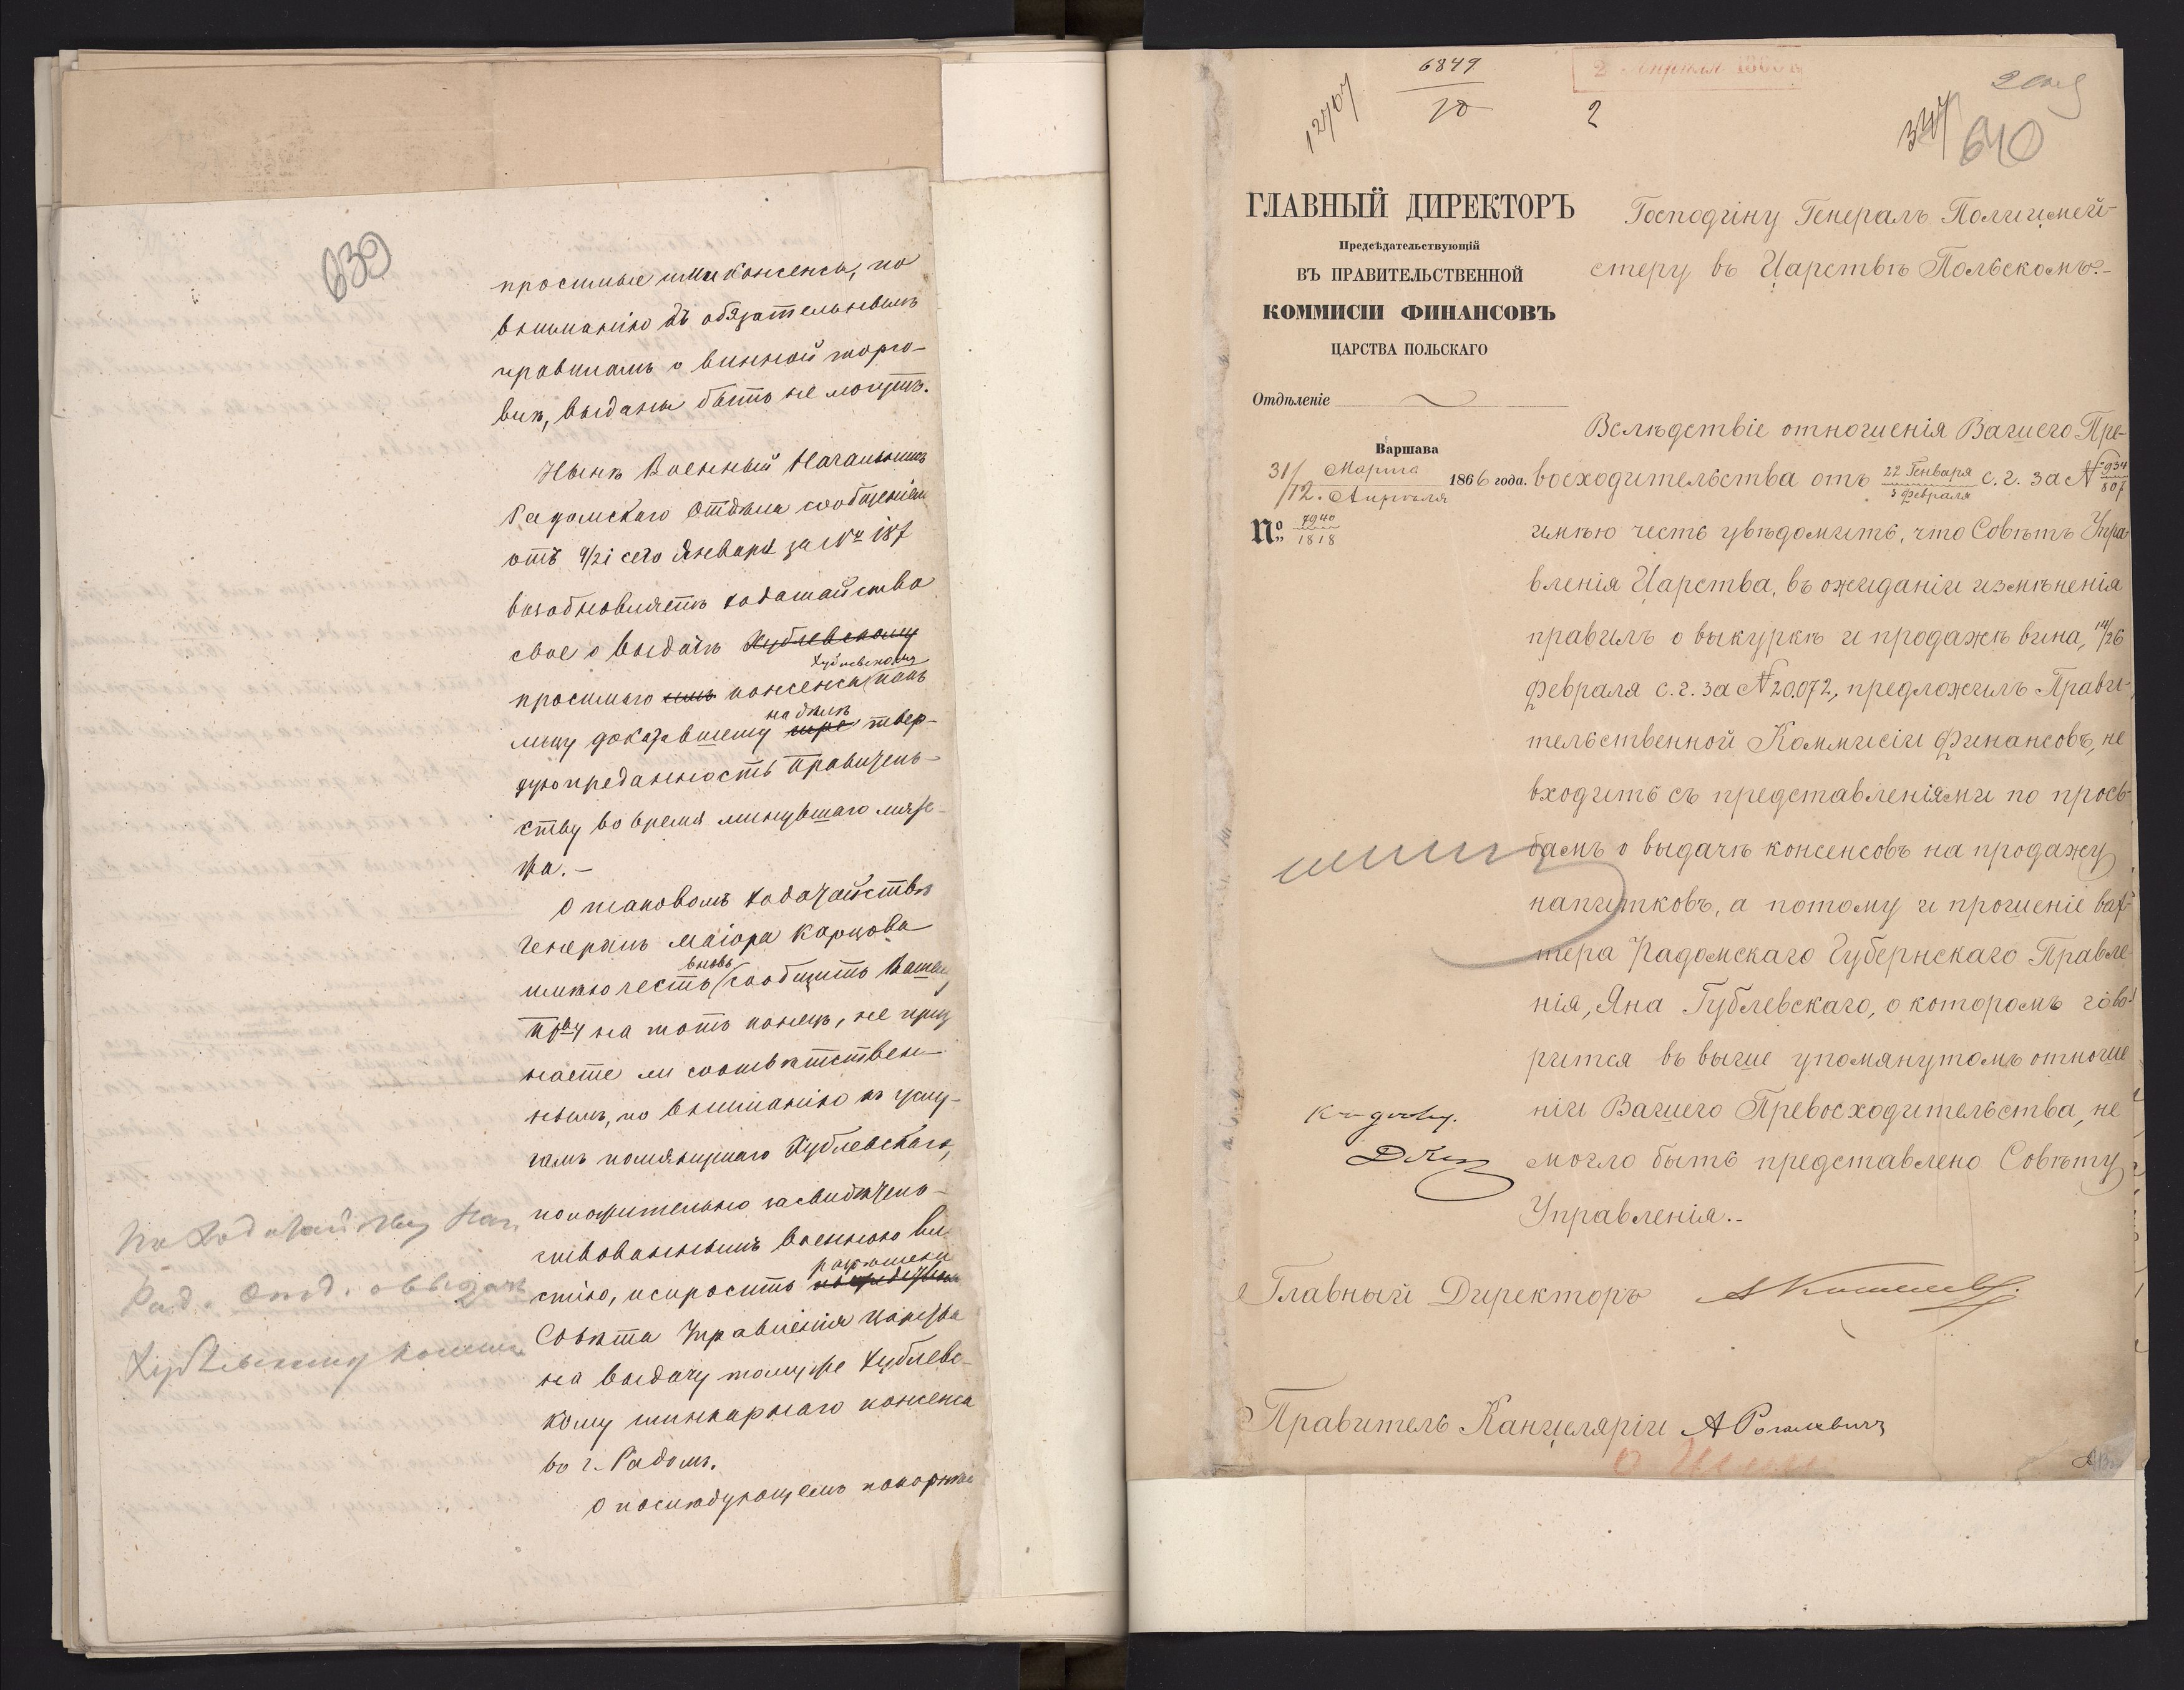 639
просимые ими консенсы, по
вниманію къ обязательнымъ
правиламъ о винной торго-
влѣ, выданы быть не могутъ.
Нынѣ Военный Начальникъ
Радомскаго Отдѣла сообщеніемъ
отъ 9/21 сего Января за № 187
возобновляетъ ходатайство
свое о выдачѣ Хублевскому
Хублевскому
просимаго имъ консенса, какъ
на дѣлѣ
лицу доказавшему твер-
дую преданность Правитель-
ству во время минувшаго мяте-
жа. –
О таковомъ ходатайствѣ
Генералъ Маіора Карцова
вновь
имѣю честь сообщить Вашему
Пр–ву на тотъ конецъ, не приз
наете ли соотвѣтствен-
нымъ, по вниманію къ услу-
гамъ помянутаго Хублевскаго,
положительно засвидѣтель-
ствованнымъ военною вла
стію, испросить
разрѣшенія
Совѣта Управленія Царства
на выдачу тому же Хублевс-
кому шинкарнаго консенса
въ г. Радомъ.
О послѣдующемъ покорнѣй
По ходатайству Нач.
Рад. Отд. о выдачѣ
Хублевскому консенса
6849
10
12707
2
2 Апрѣля 1866
347
640
ГЛАВНЫЙ ДИРЕКТОРЪ
Предсѣдательствующій
ВЪ ПРАВИТЕЛЬСТВЕННОЙ
КОММИСІИ ФИНАНСОВЪ
ЦАРСТВА ПОЛЬСКАГО
Отдѣленіе
Варшава
31/12 Марта Апрѣля 1866 года.
№ 7940
1818
Господину Генералъ Полицмей-
стеру въ Царствѣ Польскомъ.–
Вслѣдствіе отношенія Вашего Пре-
восходительства отъ 22 Генваря 3 Февраля с. г. за № 934 807
имѣю честь увѣдомить, что Совѣтъ Упра
вленія Царства, въ ожиданіи измѣненія
правилъ о выкуркѣ и продажѣ вина, 14/26
Февраля с. г. за № 20.072, предложилъ Прави-
тельственной Коммисіи Финансовъ, не
входить съ представленіями по прось-
бамъ о выдачѣ консенсовъ на продажу
напитковъ, а потому и прошеніе вах-
тера Радомскаго Губернскаго Правле-
нія, Яна Гублевскаго, о которомъ гово-
рится въ выше упомянутомъ отноше
ніи Вашего Превосходительства, не
могло быть представлено Совѣту
Управленія.–
Къ дѣлу.
Главный Директоръ АКошелевъ
Правитель Канцеляріи А Рогалевичъ